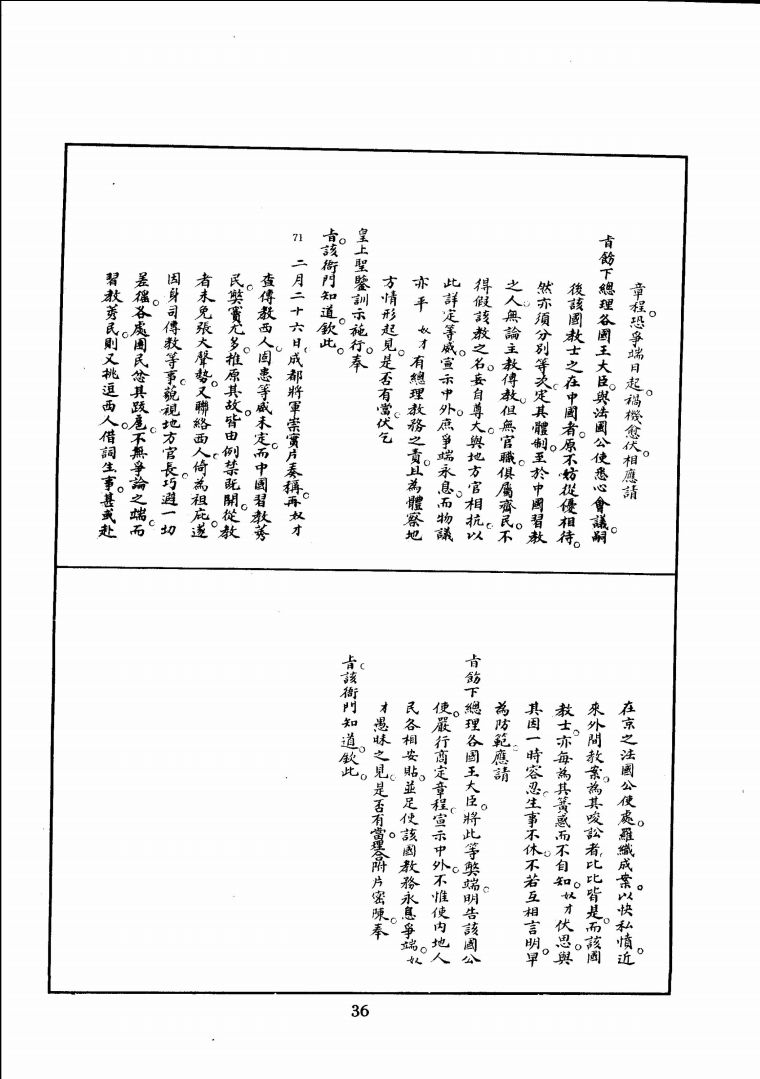 章程。恐爭端日起。禍機愈伏。相應請
旨飭下總理各國王大臣。與法國公使悉心會議。嗣
後該國教士之在中國者。原不妨從優相待。
然亦須分別等次。定其體制。至於中國習教
之人。無論主教傳教。但無官職。俱屬齊民。不
得假該教之名。妄自尊大。與地方官相抗。以
此詳定等威。宣示中外。庶爭端永息。而物議
亦平。奴才有總理教務之責。且為體察地
方情形起見。是否有當。伏乞
皇上聖鑒訓示施行。奉
旨。該衙門知道。欽此。
71 二月二十六日。成都將軍崇實片奏稱。再奴才
查傳教西人。固患等威未定。而中國習教莠
民。獘竇尤多。推原其故。皆由例禁既開。從教
者未免張大聲勢。又聯絡西人。倚為袒庇。遂
因身司傳教等事。藐視地方官長。巧避一切
差徭。各處團民忿其跋扈。不無爭論之端。而
習教莠民。則又挑逗西人。借詞生事。甚或赴
在京之法國公使處。羅織成案。以快私憤。近
來外間教案。為其唆訟者。比比皆是。而該國
教士。亦每為其簧惑而不自知。奴才伏思。與
其因一時容忍。生事不休。不若互相言明。早
為防範。應請
旨飭下總理各國王大臣。將此等獘端。明告該國公
使。嚴行商定章程。宣示中外。不惟使內地人
民各相安貼。並足使該國教務永息爭端。奴
才愚昧之見。是否有當。理合附片密陳。奉
旨。該衙門知道。欽此。
36